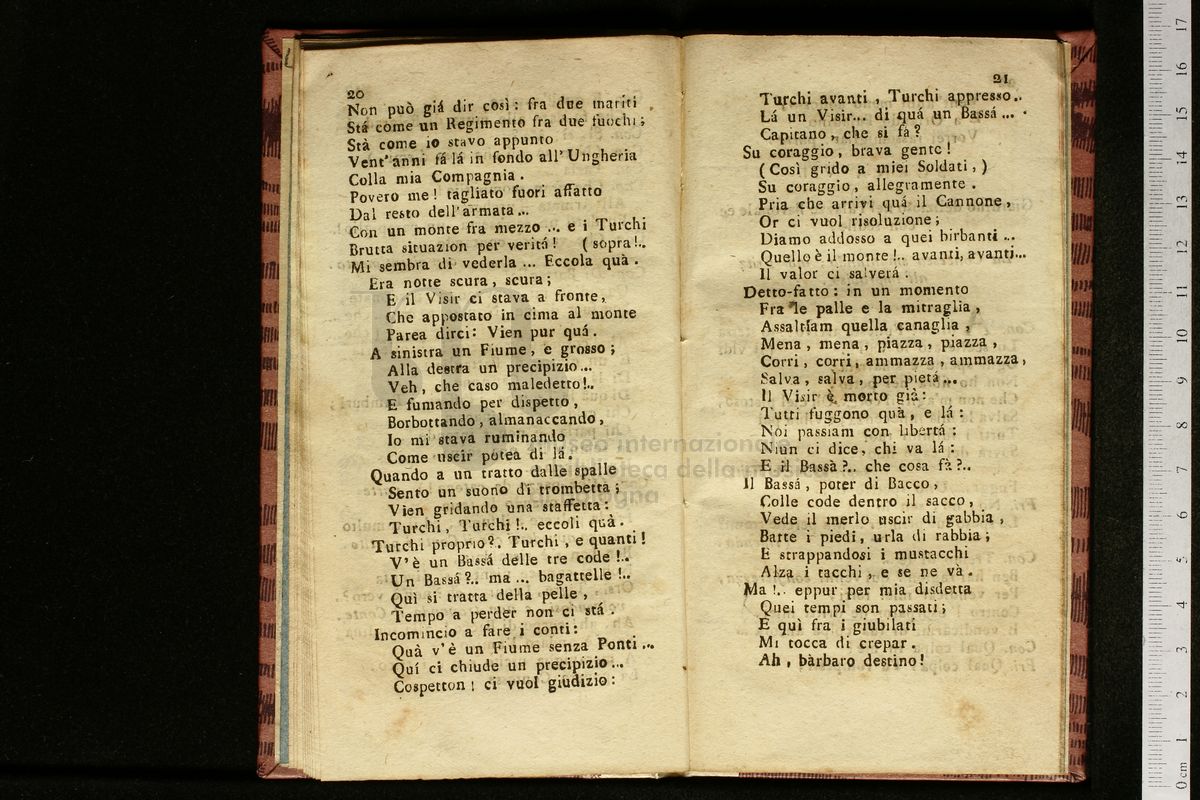 20
Non può giá dir così: fra due mariti
Stá come un Regimento fra due fuochi;
Stà come io stavo appunto
Vent' anni fá lá in fondo all' Ungheria
Colla mia Compagnia.
Povero me! tagliato fuori affatto
Dal resto dell'armata...
Con un monte fra mezzo ... e i Turchi
Brutta situazion per veritá! (sopra!..
Mi sembra di vederla ... Eccola quà.
Era notte scura, scura;
E il Visir ci stava a fronte,
Che appostato in cima al monte
Parea dirci: Vien pur quá.
A sinistra un Fiume, e grosso;
Alla destra un precipizio...
Veh, che caso maledetto!..
E fumando per dispetto,
Borbottando, almanaccando,
Io mi stava ruminando
Come uscir potea di lá.
Quando a un tratto dalle spalle
Sento un suono di trombetta;
Vien gridando una staffetta:
Turchi, Turchi!.. eccoli quà.
Turchi proprio?. Turchi, e quanti!
V'è un Bassá delle tre code!..
Un Bassá?.. ma ... bagattelle!..
Quì si tratta della pelle,
Tempo a perder non ci stá.
Incomincio a fare i conti:
Quà v'è un Fiume senza Ponti...
Quí ci chiude un precipizio...
Cospetton! ci vuol giudizio:
21
Turchi avanti, Turchi appresso..
Lá un Visir... di quá un Bassá ...
Capitano, che si fa?
Su coraggio, brava gente!
(Così grido a miei Soldati,)
Su coraggio, allegramente.
Pria che arrivi quá il Cannone,
Or ci vuol risoluzione;
Diamo addosso a quei birbanti ...
Quello è il monte!.. avanti, avanti...
Il valor ci salverá.
Detto-fatto: in un momento
Fra le palle e la mitraglia,
Assaltiam quella canaglia,
Mena, mena, piazza, piazza,
Corri, corri, ammazza, ammazza,
Salva, salva, per pietá...
Il Visir è morto già:
Tutti fuggono quà, e lá:
Noi passiam con libertá:
Niun ci dice, chi va lá:
E il Bassà?.. che cosa fà?..
Il Bassá, poter di Bacco,
Colle code dentro il sacco,
Vede il merlo uscir di gabbia,
Batte i piedi, urla di rabbia;
E strappandosi i mustacchi
Alza i tacchi, e se ne và.
Ma!.. eppur per mia disdetta
Quei tempi son passati;
E quì fra i giubilati
Mi tocca di crepar.
Ah, bàrbaro destino!
museo internazionale
biblioteca della musica
bologna
0 cm 1 2 3 4 5 6 7 8 9 10 11 12 13 14 15 16 17